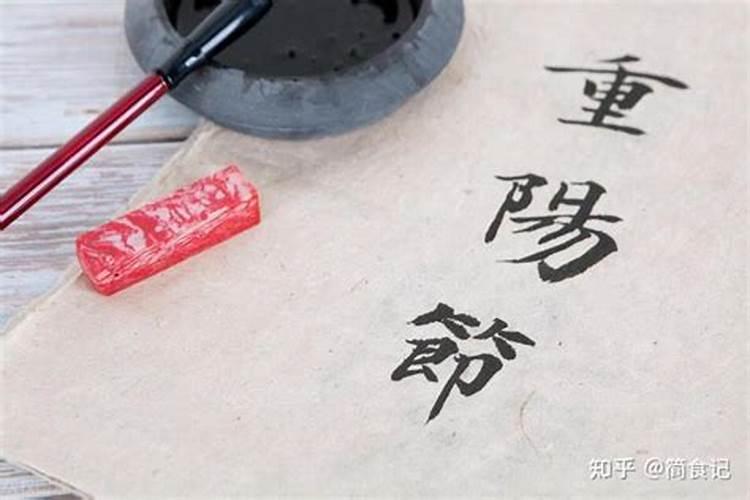 重陽節
知乎 @简食记